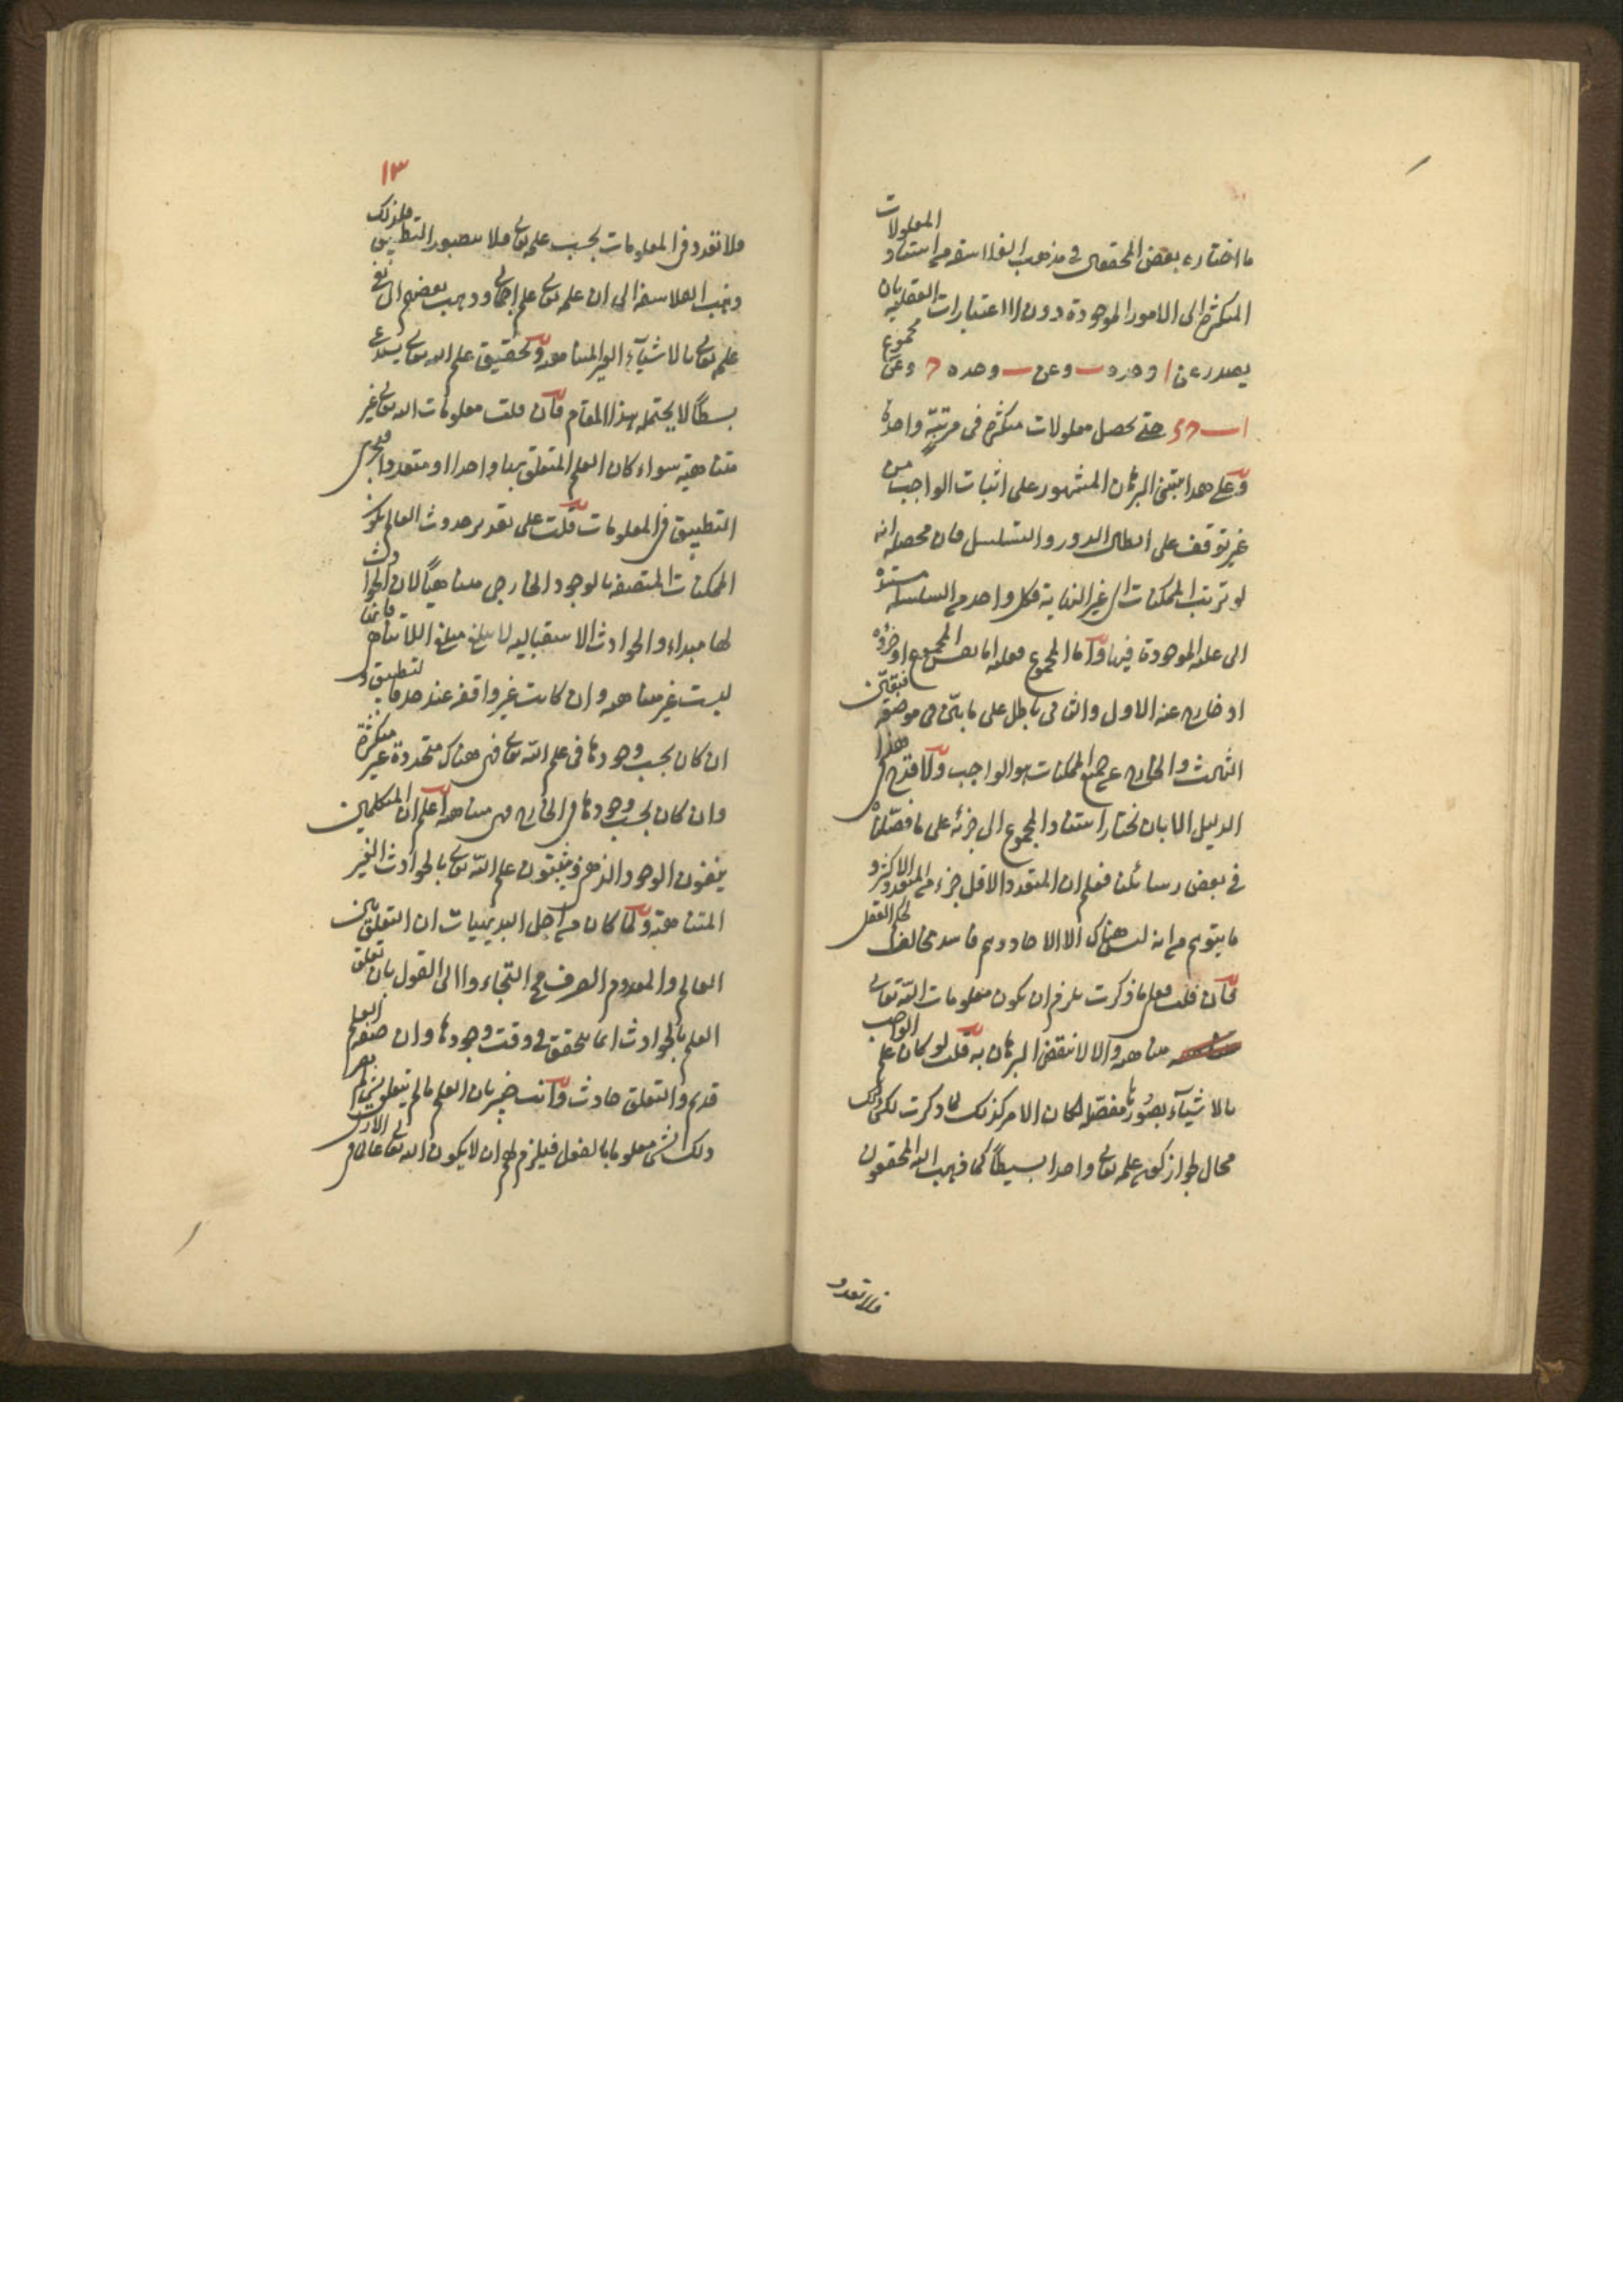 ما اختاره بعض المحققين في مذهب الفلاسفة من استناد المعلولات
المتكثرة الى الامور الموجودة دون الاعتبارات العقلية بان
يصدر عن ا وحده ب وعن ب وحده ج وعن مجموع
ا ب ج د حتى يحصل معلولات متكثرة في مرتبة واحدة
وعلى هذا مبنى البرهان المشهور على اثبات الواجب من
غير توقف على ابطال الدور والتسلسل فان محصله انه
لو ترتب الممكنات الى غير النهاية فكل واحد من السلسلة مستند
الى علته الموجودة فيها واما المجموع فعلته اما نفس المجموع او جزؤه
او خارج عنه الاول والثاني باطل على ما بين في موضعه فتعين
الثالث والخارج عن جميع الممكنات هو الواجب ولا قدح في هذا
الدليل الا بان نختار استناد المجموع الى جزئه على ما فصلناه
في بعض رسائلنا فعلم ان المتعدد الاقل جزء من المتعدد الاكثر و
ما يتوهم من انه ليس هناك الا الاحاد وهم فاسد مخالف لحكم العقل
فان قلت فعلى ما ذكرت يلزم ان يكون معلومات الله تعالى
متناهية والا لانتقض البرهان به قلت لو كان علم الواجب
بالاشياء بصورها مفصلة لكان الامر كذلك لما ذكرت لكن ذلك
محال لجواز كون علمه تعالى واحدا بسيطا كما ذهب اليه المحققون
فلا تعدد
١٣
فلا تعدد في المعلومات بحسب علمه تعالى فلا يتصور التطبيق ولذلك
ذهب الفلاسفة الى ان علمه تعالى علم اجمالي وذهب بعضهم الى نفي
علمه تعالى بالاشياء الغير المتناهية وتحقيق علم الله تعالى يستدعي
بسطا لا يحتمله هذا المقام فان قلت معلومات الله تعالى غير
متناهية سواء كان العلم المتعلق بها واحدا او متعددا فيجري
التطبيق في المعلومات قلت على تقدير حدوث العالم يكون
الممكنات المتصفة بالوجود الخارجي متناهيا لان الحوادث
لها مبداء والحوادث الاستقبالية لا يبلغ مبلغ اللاتناهي فانها
ليست غير متناهية وان كانت غير واقفة عند حد فالتطبيق
ان كان بحسب وجودها في علم الله تعالى فهي هناك متحدة غير متكثرة
وان كان بحسب وجودها في الخارج فهي متناهية اعلم ان المتكلمين
ينفون الوجود الذهني ويثبتون علم الله تعالى بالحوادث الغير
المتناهية ولما كان من اجل البديهيات ان التعلق بين
العالم والمعدوم الصرف مح التجاءوا الى القول بان تعلق
العلم بالحوادث انما يتحقق في وقت وجودها وان صفة العلم
قديم والتعلق حادث وانت خبير بان العلم ما لم يتعلق بشيء لم يصر
ذلك الشي معلوما بالفعل فيلزم عليهم ان لا يكون الله تعالى عالما في الازل